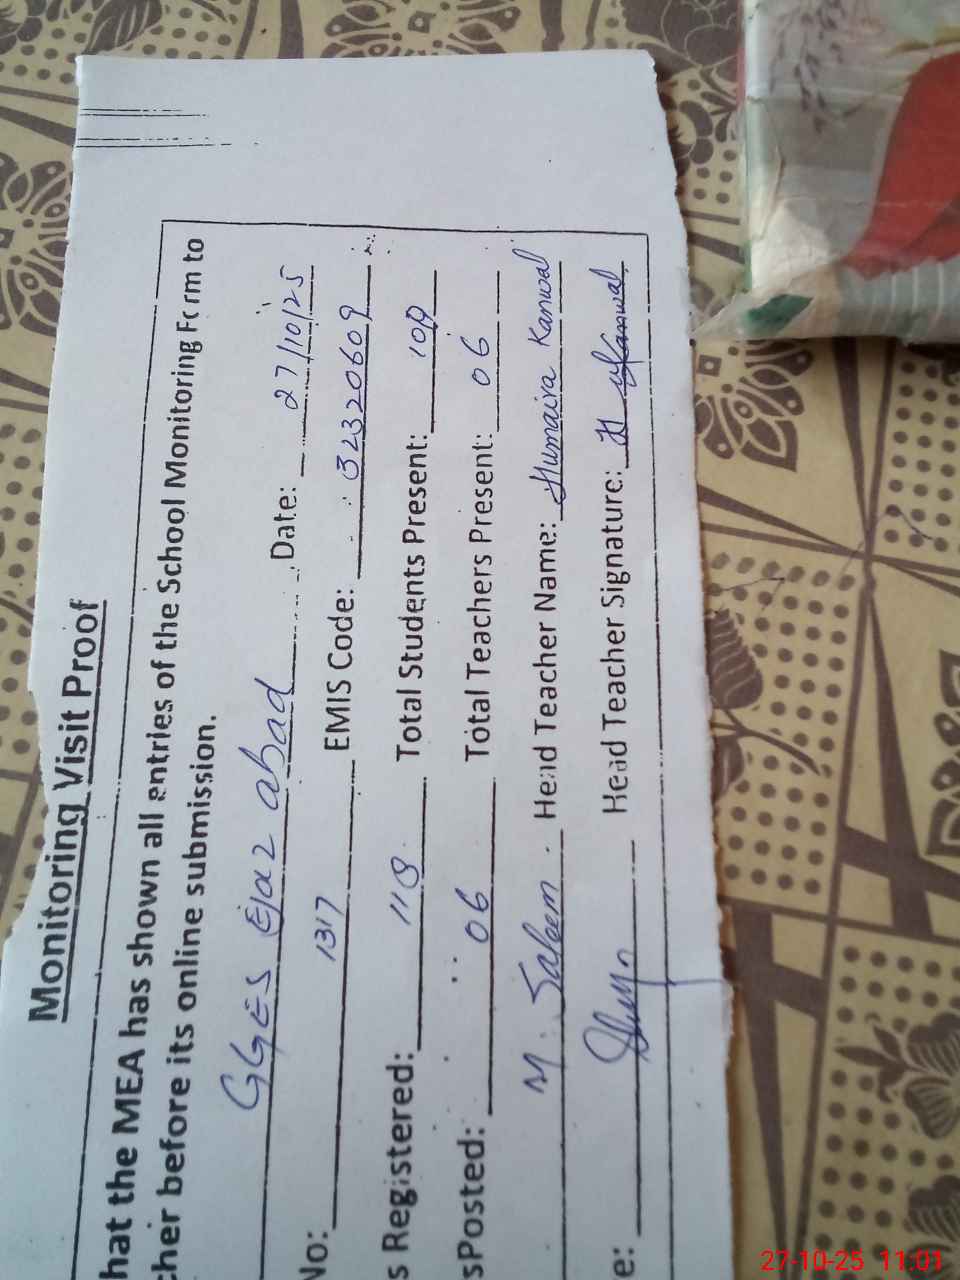 Monitoring Visit Proof
hat the MEA has shown all entries of the School Monitoring Form to
cher before its online submission.
GGES Ejaz abad Date: 27/10/25
No: 1317 EMIS Code: 32320609
s Registered: 118 Total Students Present: 109
sPosted: 06 Total Teachers Present: 06
M. Saleem Head Teacher Name: Humaira Kanwal
e: Head Teacher Signature: H Kanwal
27-10-25 11:01